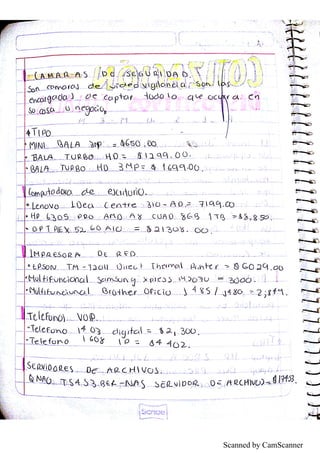 CAMARAS DE SEGURIDAD.
Son camaras de videovigilancia. Son las
encargadas de captar todo lo que ocurra en
su casa o negocio,
TIPO
MINI BALA 3MP = $650.00
BALA TURBO HD = $1299.00.
BALA TURBO HD 3MP = $1699.00.
Computadora de escritorio.
Lenovo IDea Centre 310-A0 = 7199.00
HP 6305 PRO AMD A8 CUAD 8GB 1TB = $3,850.
OPTIPEX 5260 AIO = $21308.00.
IMPRESORA DE RED
EPSON TM-T20II Direct Thermal Printer = $6029.00
Multifuncional Samsung xpress M2070 = 3000.
Multifuncional Brother Oficio
Telefono VOIP.
Telefono 1403 digital = $2,300.
Telefono 1608 IP = $4 402.
SERVIDORES DE ARCHIVOS.
QNAP TS453Be-NAS SERVIDOR DE ARCHIVO =
Scribe
Scanned by CamScanner